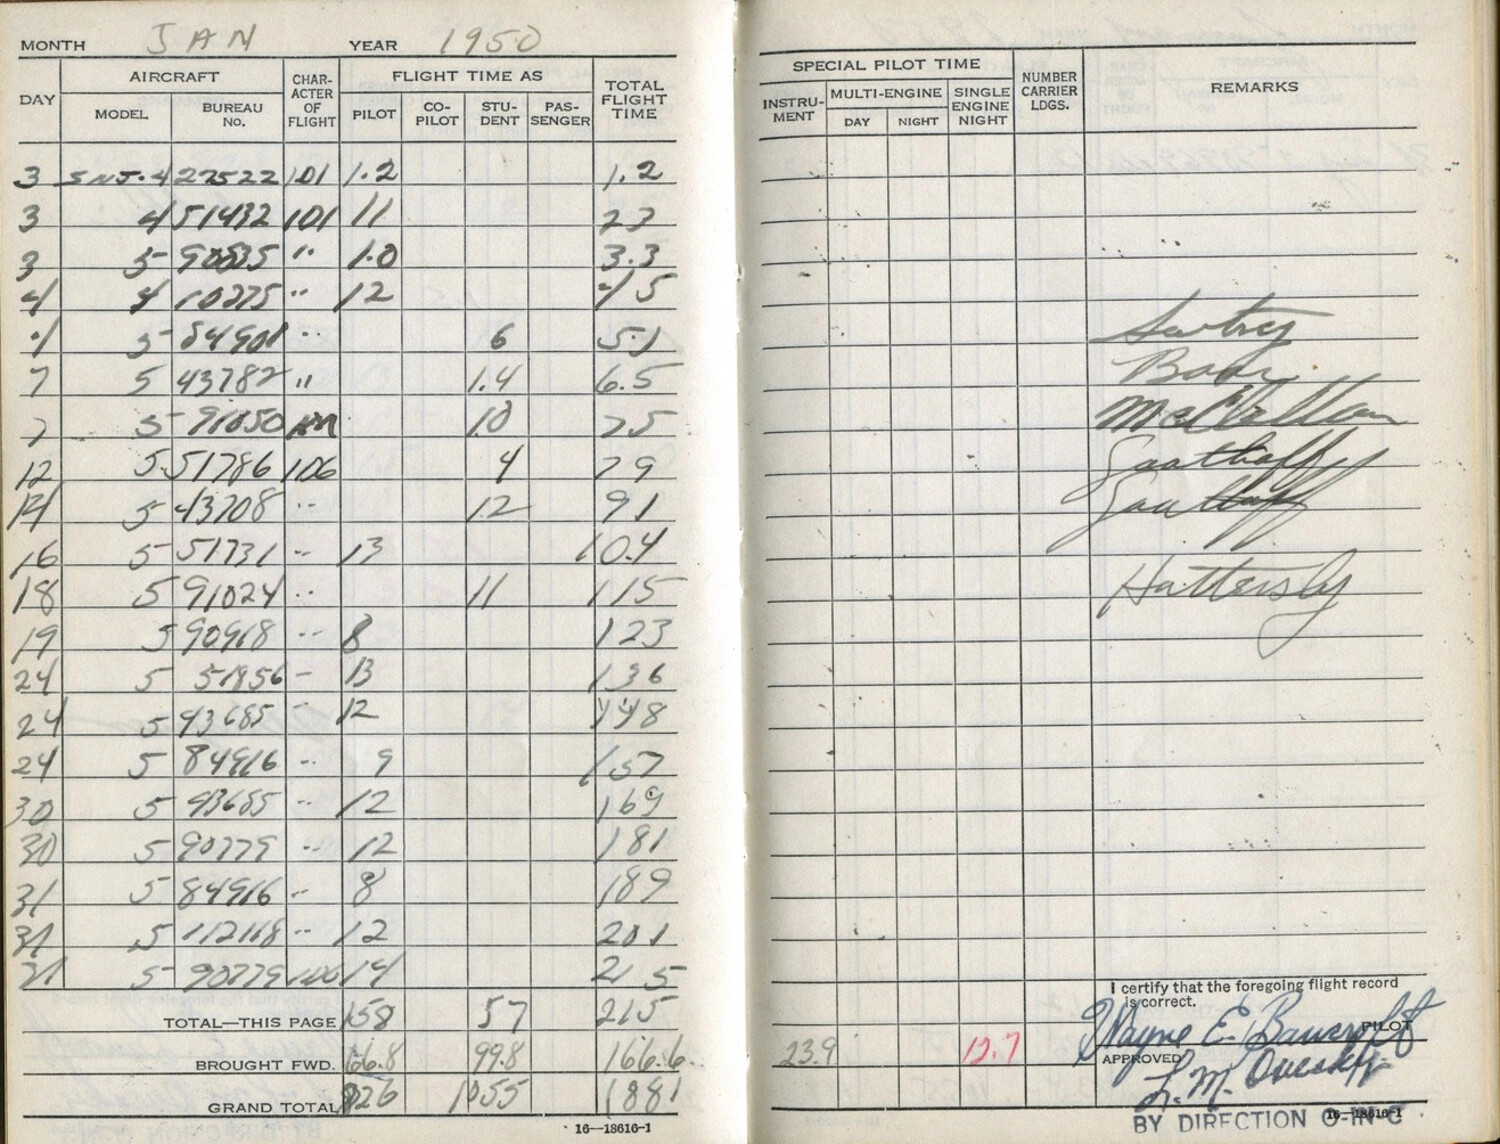 MONTH JAN YEAR 1950
DAY AIRCRAFT CHAR-ACTER OF FLIGHT FLIGHT TIME AS TOTAL FLIGHT TIME
MODEL BUREAU No. PILOT CO-PILOT STU-DENT PAS-SENGER
3 SNJ-4 27522 101 1.2 1.2
3 4 51432 101 11 23
3 5 90835 " 1.0 3.3
4 4 10275 " 12 45
4 5 84901 " 6 5.1
7 5 43782 " 1.4 6.5
7 5 91050 10 75
12 5 51786 106 4 79
14 5 43708 " 12 91
16 5 51731 " 13 10.4
18 5 91024 " 11 115
19 5 90918 " 8 123
24 5 51856 " 13 136
24 5 43685 " 12 148
24 5 84916 " 9 157
30 5 43685 " 12 169
30 5 90779 " 12 181
31 5 84916 " 8 189
31 5 112118 " 12 201
31 5 90779 106 14 215
TOTAL—THIS PAGE 158 57 215
BROUGHT FWD. 66.8 99.8 166.6
GRAND TOTAL 826 1055 1881
16—18616-1
SPECIAL PILOT TIME NUMBER CARRIER LDGS. REMARKS
INSTRU-MENT MULTI-ENGINE SINGLE ENGINE NIGHT
DAY NIGHT
McClellan
Gaathaff
Gaathaff
Hattersly
I certify that the foregoing flight record
is correct.
Wayne E. Bancroft PILOT
23.9 12.7
APPROVED
L. M.
BY DIRECTION O-IN-C
16—18616-1